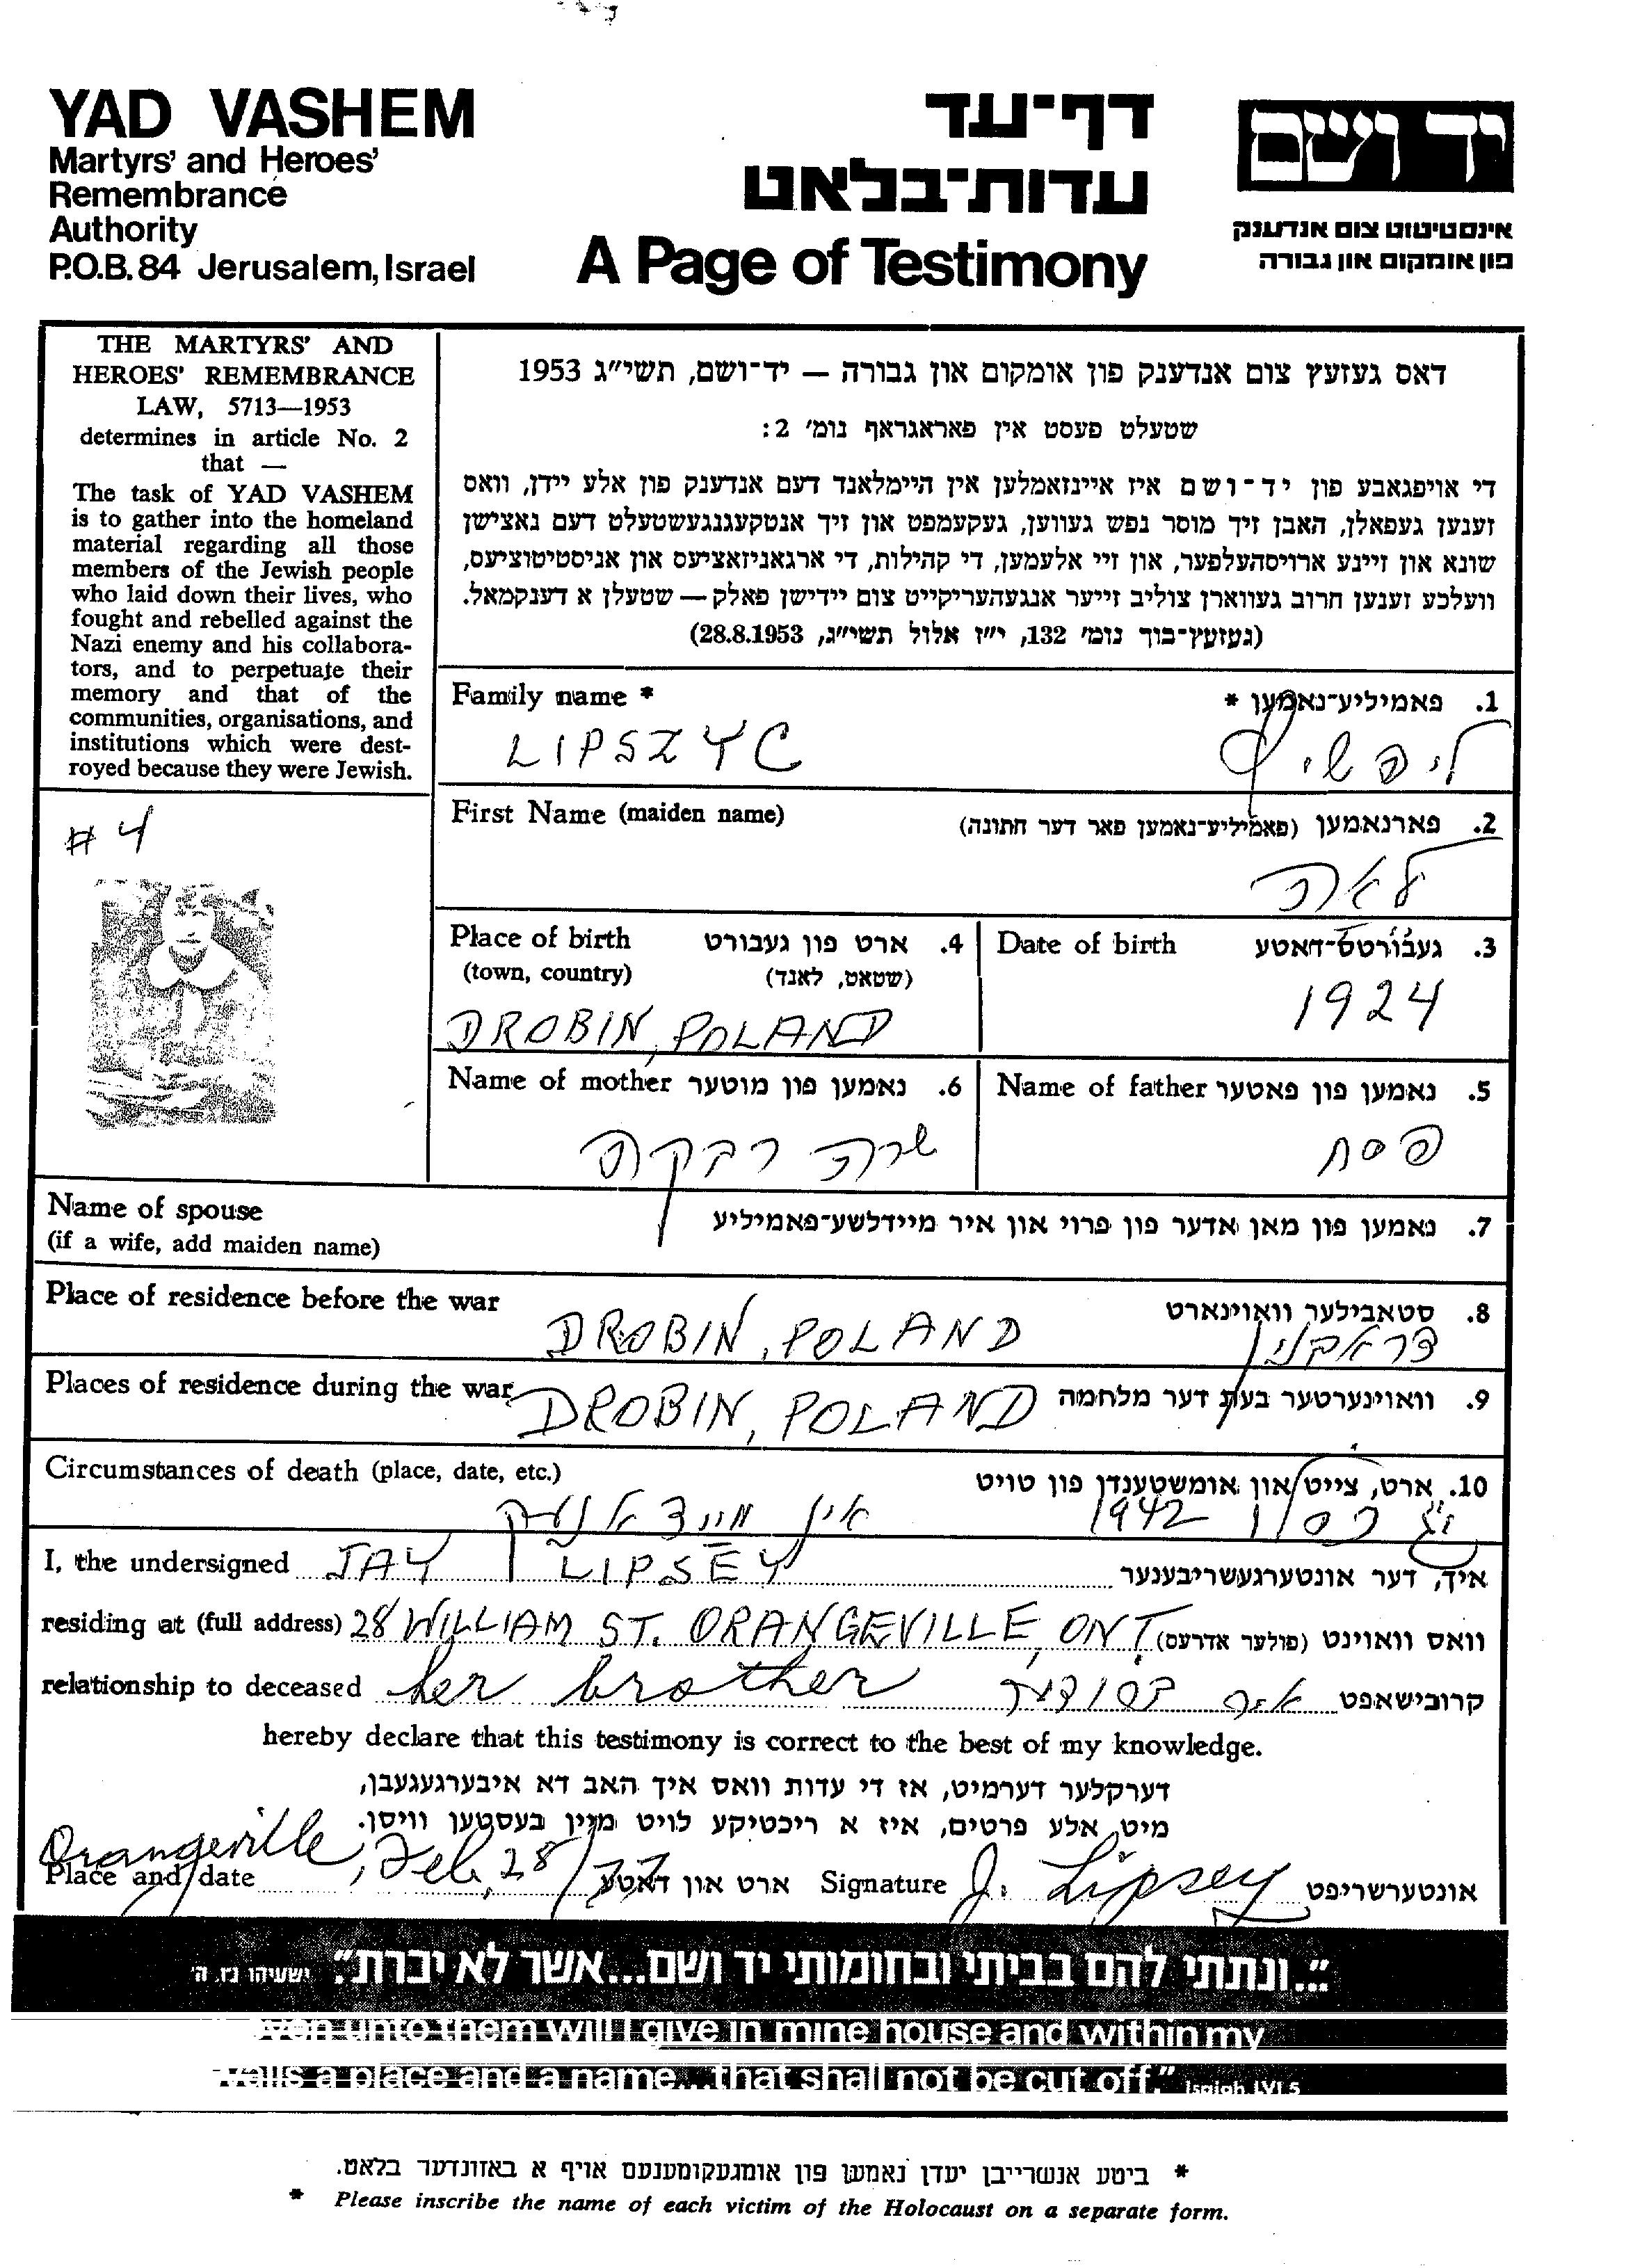 YAD VASHEM
Martyrs' and Heroes'
Remembrance
Authority
P.O.B. 84 Jerusalem, Israel
דף־עד
עדות־בלאט
A Page of Testimony
יד ושם
אינסטיטוט צום אנדענק
פון אומקום און גבורה
THE MARTYRS' AND
HEROES' REMEMBRANCE
LAW, 5713—1953
determines in article No. 2
that —
The task of YAD VASHEM
is to gather into the homeland
material regarding all those
members of the Jewish people
who laid down their lives, who
fought and rebelled against the
Nazi enemy and his collabora-
tors, and to perpetuate their
memory and that of the
communities, organisations, and
institutions which were dest-
royed because they were Jewish.
# 4
דאס געזעץ צום אנדענק פון אומקום און גבורה — יד־ושם, תשי״ג 1953
שטעלט פעסט אין פאראגראף נומ׳ 2:
די אויפגאבע פון יד־ושם איז איינזאמלען אין היימלאנד דעם אנדענק פון אלע יידן, וואס
זענען געפאלן, האבן זיך מוסר נפש געווען, געקעמפט און זיך אנטקעגנגעשטעלט דעם נאצישן
שונא און זיינע ארויסהעלפער, און זיי אלעמען, די קהילות, די ארגאניזאציעס און אניסטיטוציעס,
וועלכע זענען חרוב געווארן צוליב זייער אנגעהעריקייט צום יידישן פאלק — שטעלן א דענקמאל.
(געזעץ־בוך נומ׳ 132, י״ז אלול תשי״ג, 28.8.1953)
Family name * 1. פאמיליע־נאמען *
LIPSZYC ליפשיץ
First Name (maiden name) 2. פארנאמען (פאמיליע־נאמען פאר דער חתונה)
לאה
Place of birth 4. ארט פון געבורט
(town, country) (שטאט, לאנד)
DROBIN, POLAND
Date of birth 3. געבורטס־דאטע
1924
Name of mother 6. נאמען פון מוטער
שרה רבקה
Name of father 5. נאמען פון פאטער
פסח
Name of spouse 7. נאמען פון מאן אדער פון פרוי און איר מיידלשע־פאמיליע
(if a wife, add maiden name)
Place of residence before the war 8. סטאבילער וואוינארט
DROBIN, POLAND
Places of residence during the war 9. וואוינערטער בעת דער מלחמה
DROBIN, POLAND
Circumstances of death (place, date, etc.) 10. ארט, צייט און אומשטענדן פון טויט
כסלו 1942 אין מיידאנעק
I, the undersigned JAY LIPSEY איך, דער אונטערגעשריבענער
residing at (full address) 28 WILLIAM ST. ORANGEVILLE, ONT. וואס וואוינט (פולער אדרעס)
relationship to deceased her brother קרובישאפט איר ברודער
hereby declare that this testimony is correct to the best of my knowledge.
דערקלער דערמיט, אז די עדות וואס איך האב דא איבערגעגעבן,
מיט אלע פרטים, איז א ריכטיקע לויט מיין בעסטען וויסן.
Place and date Orangeville, Feb. 28/77 ארט און דאטע Signature J. Lipsey אונטערשריפט
"...ונתתי להם בביתי ובחומותי יד ושם...אשר לא יכרת" ישעיהו נו, ה׳
even unto them will I give in mine house and within my
walls a place and a name...that shall not be cut off." Isaiah LVI 5
* ביטע אנשרייבן יעדן נאמען פון אומגעקומענעם אויף א באזונדער בלאט.
* Please inscribe the name of each victim of the Holocaust on a separate form.